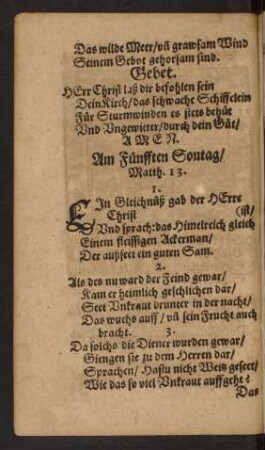 Das wilde Meer/ vñ grawsam Wind
Seinem Gebot gehorsam sind.
Gebet.
HErr Christ laß dir befohlen sein
Dein Kirch/ das schwache Schiffelein
Für Sturmwinden es stets behüt
Vnd Vngewitter/ durch dein Güt/
AMEN.
Am Fünfften Sontag/
Matth. 13.
1.
EIn Gleichnüß gab der HErre
Christ (ist/
Vnd sprach: das Himelreich gleich
Einem fleissigen Ackerman/
Der außseet ein guten Sam.
2.
Als des nu ward der Feind gewar/
Kam er heimlich geschlichen dar/
Seet Vnkraut drunter in der nacht/
Das wuchs auff/ vñ sein Frucht auch
bracht. 3.
Da solchs die Diener wurden gewar/
Giengen sie zu dem Herren dar/
Sprachen/ Hastu nicht Weitz geseet/
Wie das so viel Vnkraut auffgeht?
Das